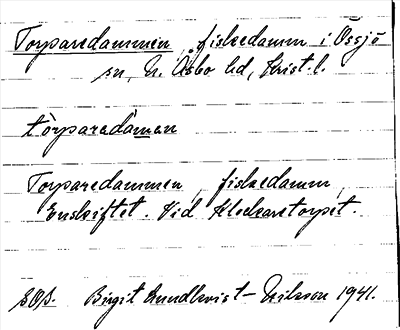 Torparedammen, fiskedamm i Össjö
sn, N. Åsbo hd, Krist. l.
tòrparedamen
Torparedammen, fiskedamm,
Enskiftet. Vid Klockaretorpet.
Birgit Lundkvist-Nilsson 1941.